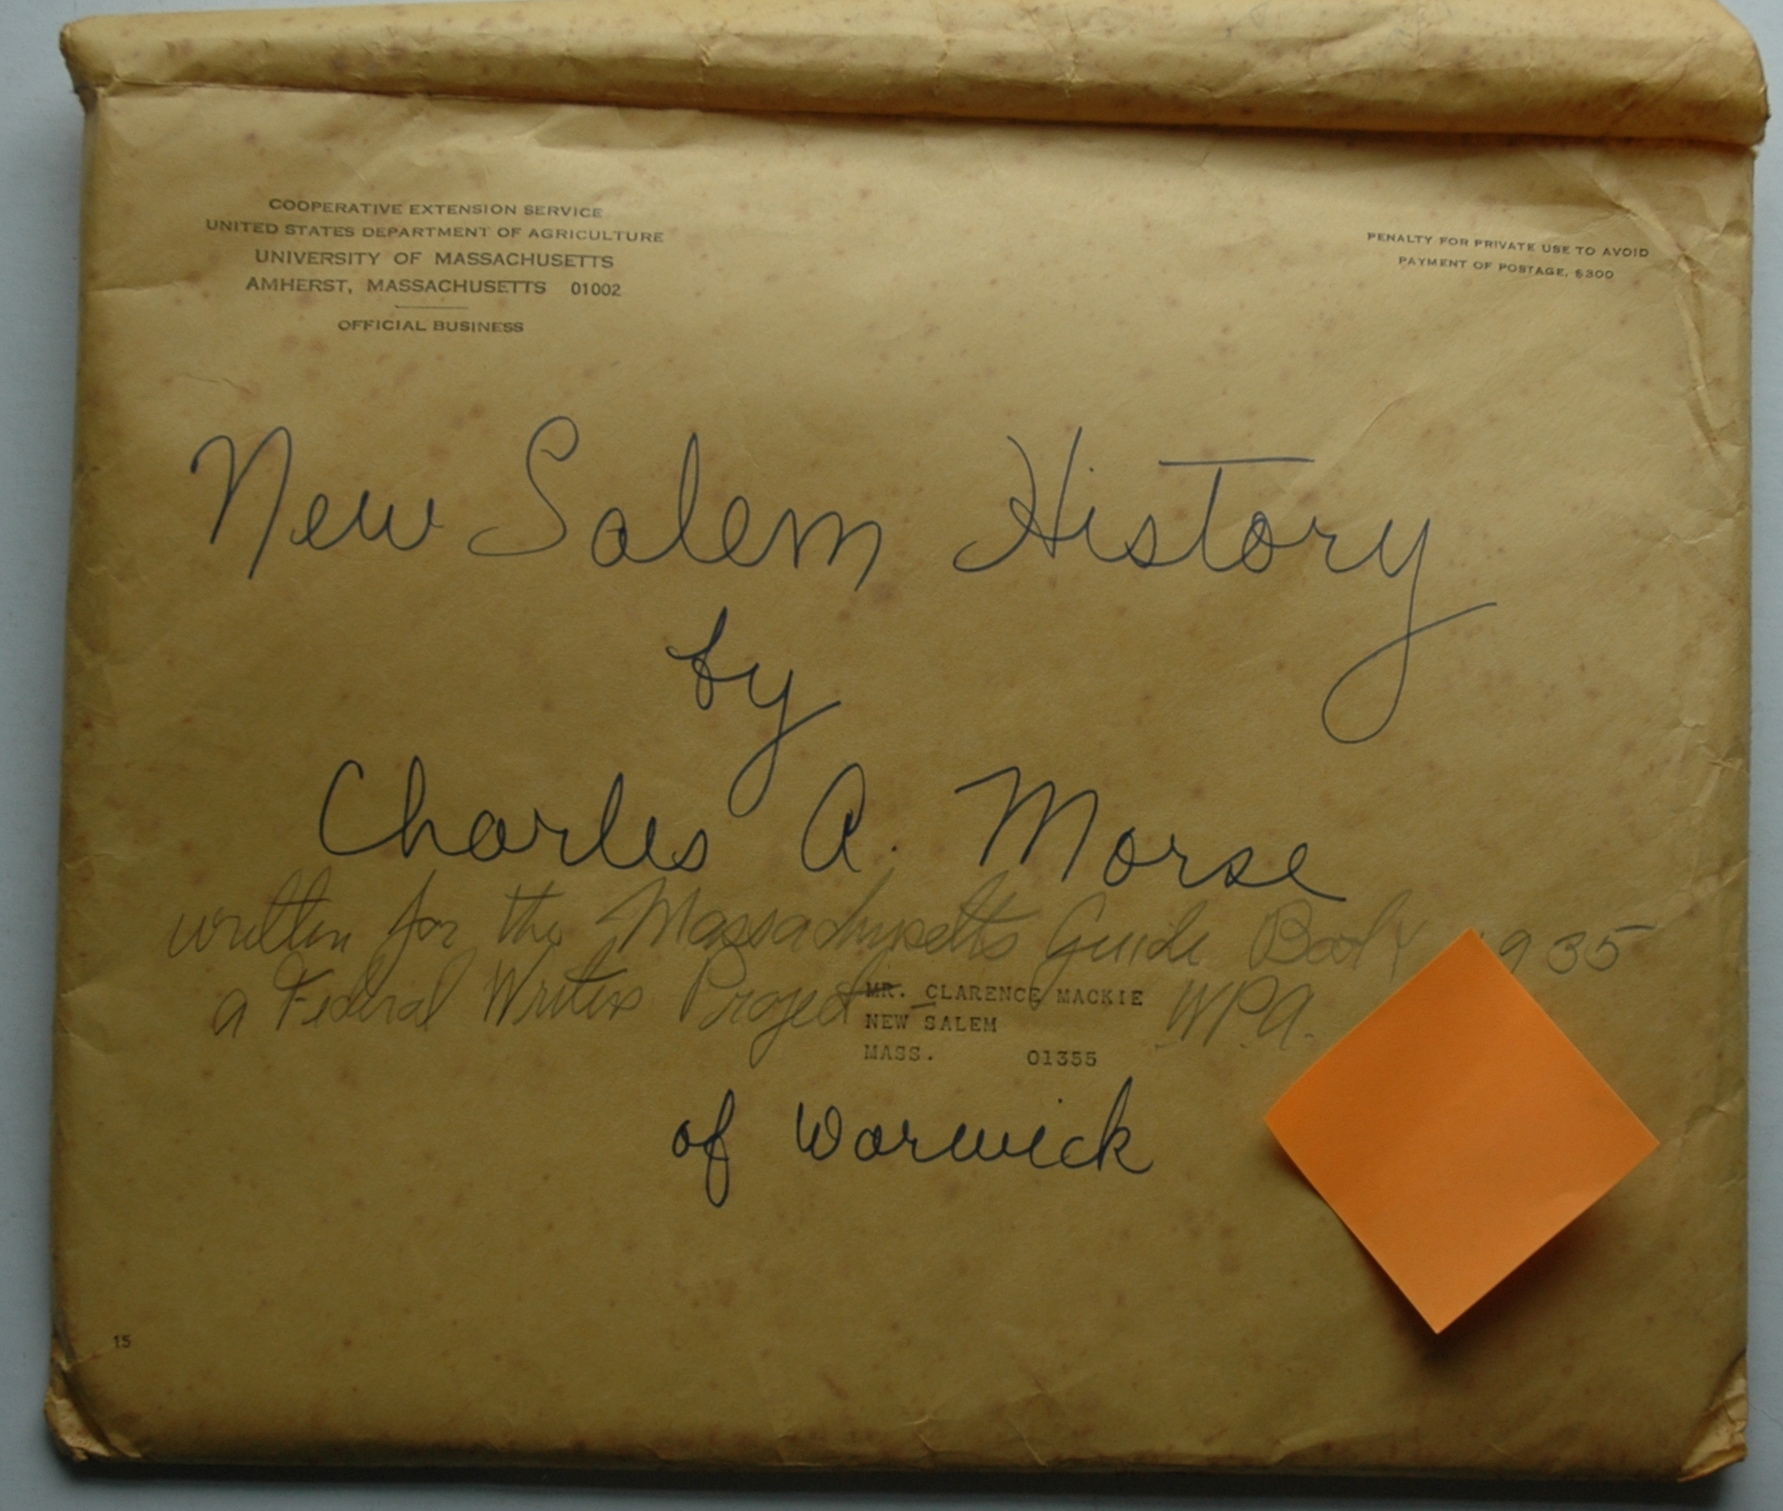 COOPERATIVE EXTENSION SERVICE
UNITED STATES DEPARTMENT OF AGRICULTURE
UNIVERSITY OF MASSACHUSETTS
AMHERST, MASSACHUSETTS 01002
OFFICIAL BUSINESS
PENALTY FOR PRIVATE USE TO AVOID
PAYMENT OF POSTAGE, $300
New Salem History
by
Charles A. Morse
written for the Massachusetts Guide Book 1935
a Federal Writers Project WPA.
MR. CLARENCE MACKIE
NEW SALEM
MASS. 01355
of Warwick
15